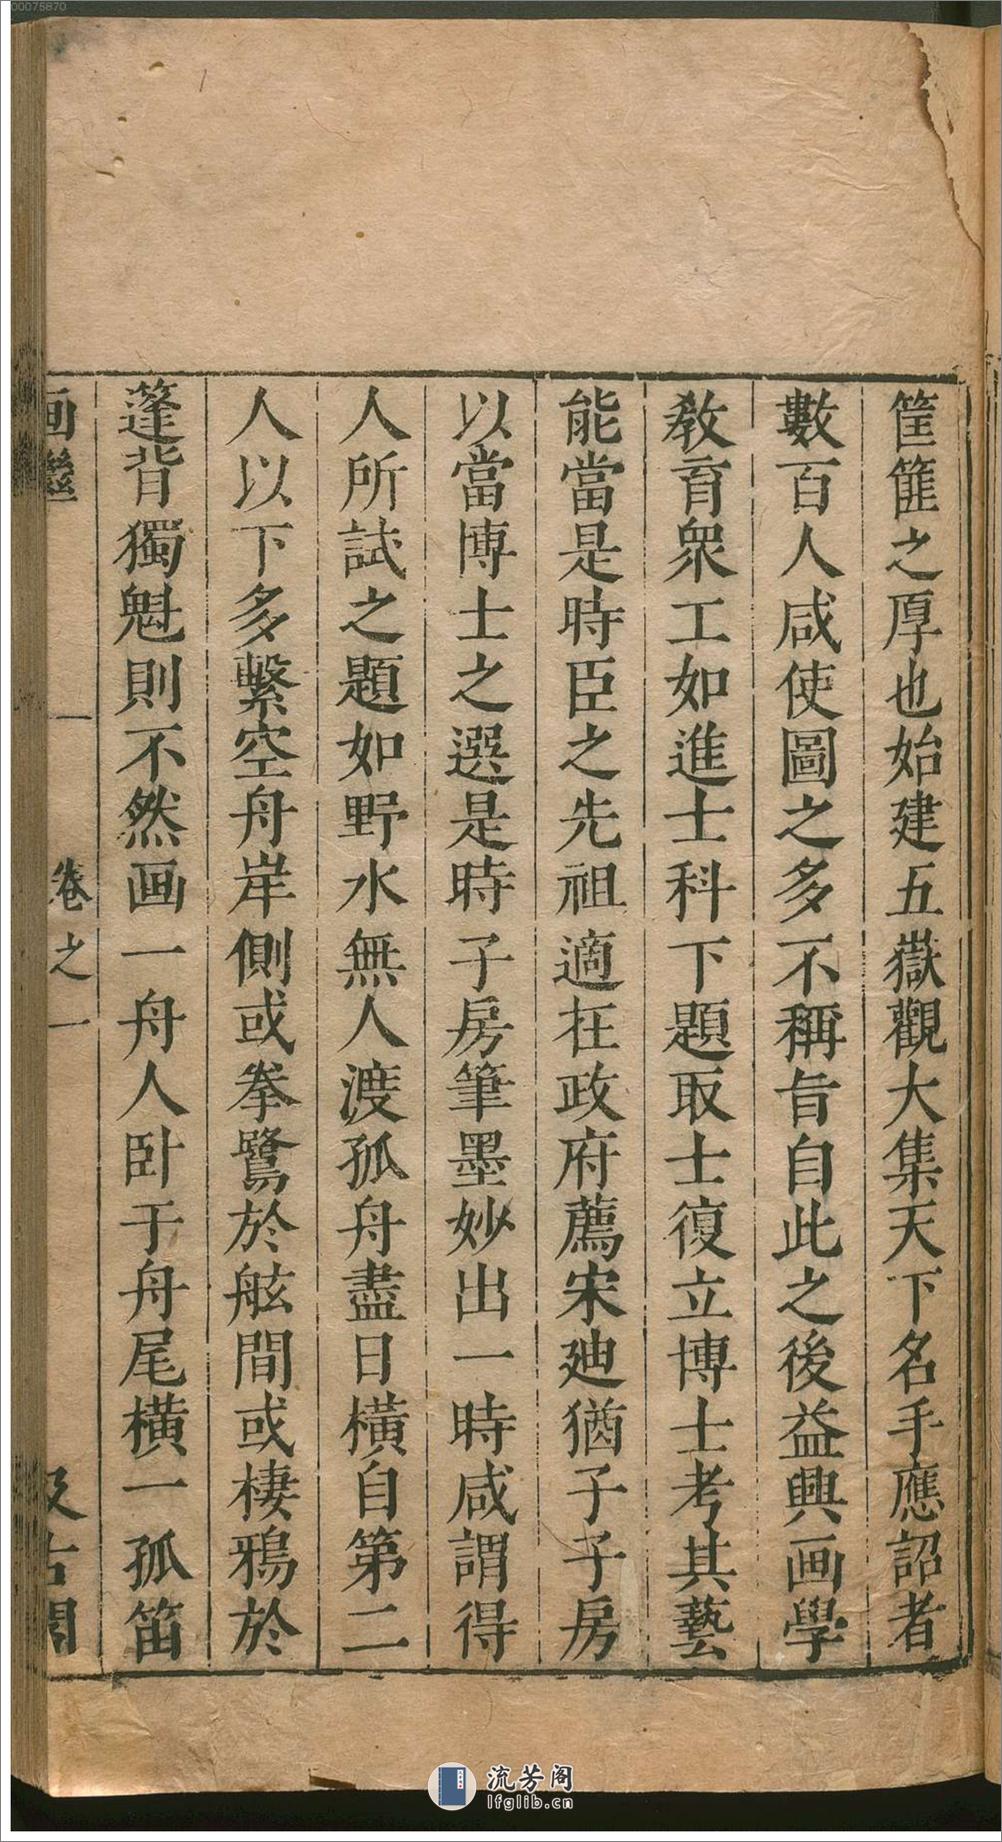 00075870
筐篚之厚也始建五嶽觀大集天下名手應詔者
數百人咸使圖之多不稱旨自此之後益興画學
教育衆工如進士科下題取士復立博士考其藝
能當是時臣之先祖適在政府薦宋廸猶子子房
以當博士之選是時子房筆墨妙出一時咸謂得
人所試之題如野水無人渡孤舟盡日橫自第二
人以下多繫空舟岸側或拳鷺於舷間或棲鴉於
蓬背獨魁則不然画一舟人卧于舟尾橫一孤笛
画繼 一 卷之一 汲古閣
流芳阁
lfglib.cn